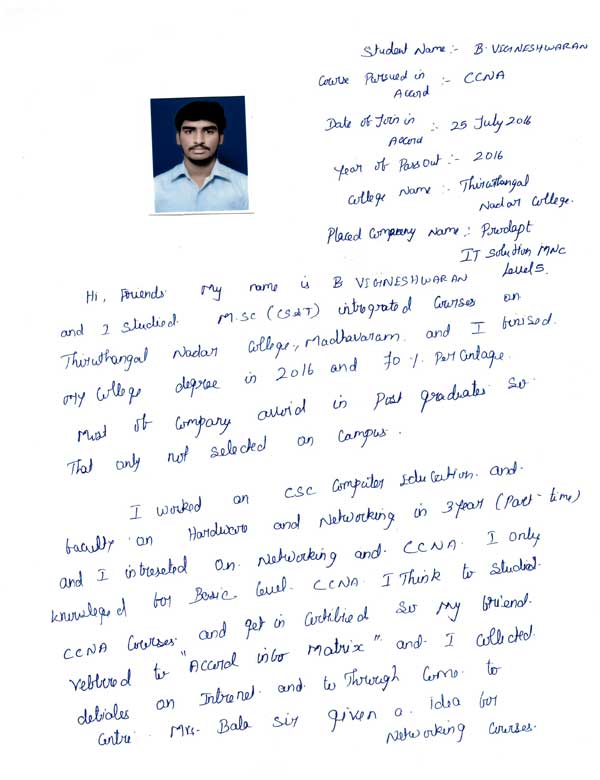 Student Name :- B. VIGINESHWARAN
Course Pursued in
Accord :- CCNA
Date of Join in
Accord :- 25 July 2016
Year of Pass Out :- 2016
College Name :- Thiruthangal
Nadar College.
Placed Company Name :- Provdapt
IT Solution MNC
Level 5.
Hi, Friends My name is B VIGINESHWARAN
and I Studied M.SC (CS&T) integrated Courses on
Thiruthangal Nadar College, Madhavaram. and I finised.
My College degree in 2016 and 70 %. Percentage.
Most of Company avoid in Post graduates So
That only not Selected on Campus.
I worked on CSC Computer Education. and
faculty on Hardware and Networking in 3 year (Part-time)
and I intrested on Networking and CCNA. I only
knowleged for Basic level. CCNA. I Think to Studied.
CCNA Courses. and get in Certified So My friend.
reffered to "Accord info Matrix" and I collected.
detiales on Intrenet. and to Through Come to
Centre. Mrs. Bala Sir given a idea for
Networking Courses.